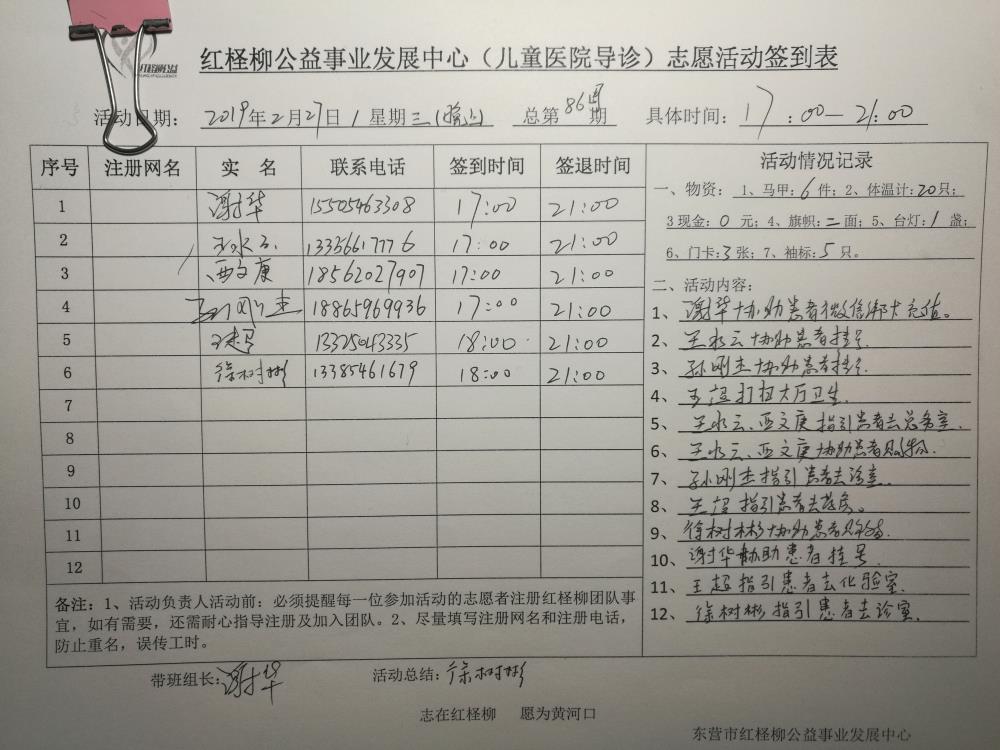 红柽柳公益
红柽柳公益事业发展中心（儿童医院导诊）志愿活动签到表
活动日期： 2019年2月27日 / 星期三(晚上) 总第86期 具体时间：17：00—21：00
序号 注册网名 实 名 联系电话 签到时间 签退时间
1 谢华 15505463308 17:00 21:00
2 王水云 13356617776 17:00 21:00
3 亚文庚 18562027907 17:00 21:00
4 孙刚杰 18865969936 17:00 21:00
5 王超 13325043335 18:00 21:00
6 徐树彬 13385461679 18:00 21:00
7
8
9
10
11
12
备注：1、活动负责人活动前：必须提醒每一位参加活动的志愿者注册红柽柳团队事
宜，如有需要，还需耐心指导注册及加入团队。2、尽量填写注册网名和注册电话，
防止重名，误传工时。
活动情况记录
一、物资： 1、马甲：6件；2、体温计：20只；
3现金：0 元；4、旗帜：二面；5、台灯：1 盏；
6、门卡：3张；7、袖标：5 只。
二、活动内容：
1、谢华协助患者微信绑卡充值。
2、王水云协助患者挂号.
3、孙刚杰协助患者挂号.
4、王超打扫大厅卫生.
5、王水云、亚文庚指引患者去总务室.
6、王水云、亚文庚协助患者购物.
7、孙刚杰指引患者去诊室.
8、王超指引患者去药房。
9、徐树彬协助患者
10、谢华协助患者挂号
11、王超指引患者去化验室.
12、徐树彬指引患者去诊室.
带班组长：谢华 活动总结：徐树彬
志在红柽柳 愿为黄河口
东营市红柽柳公益事业发展中心